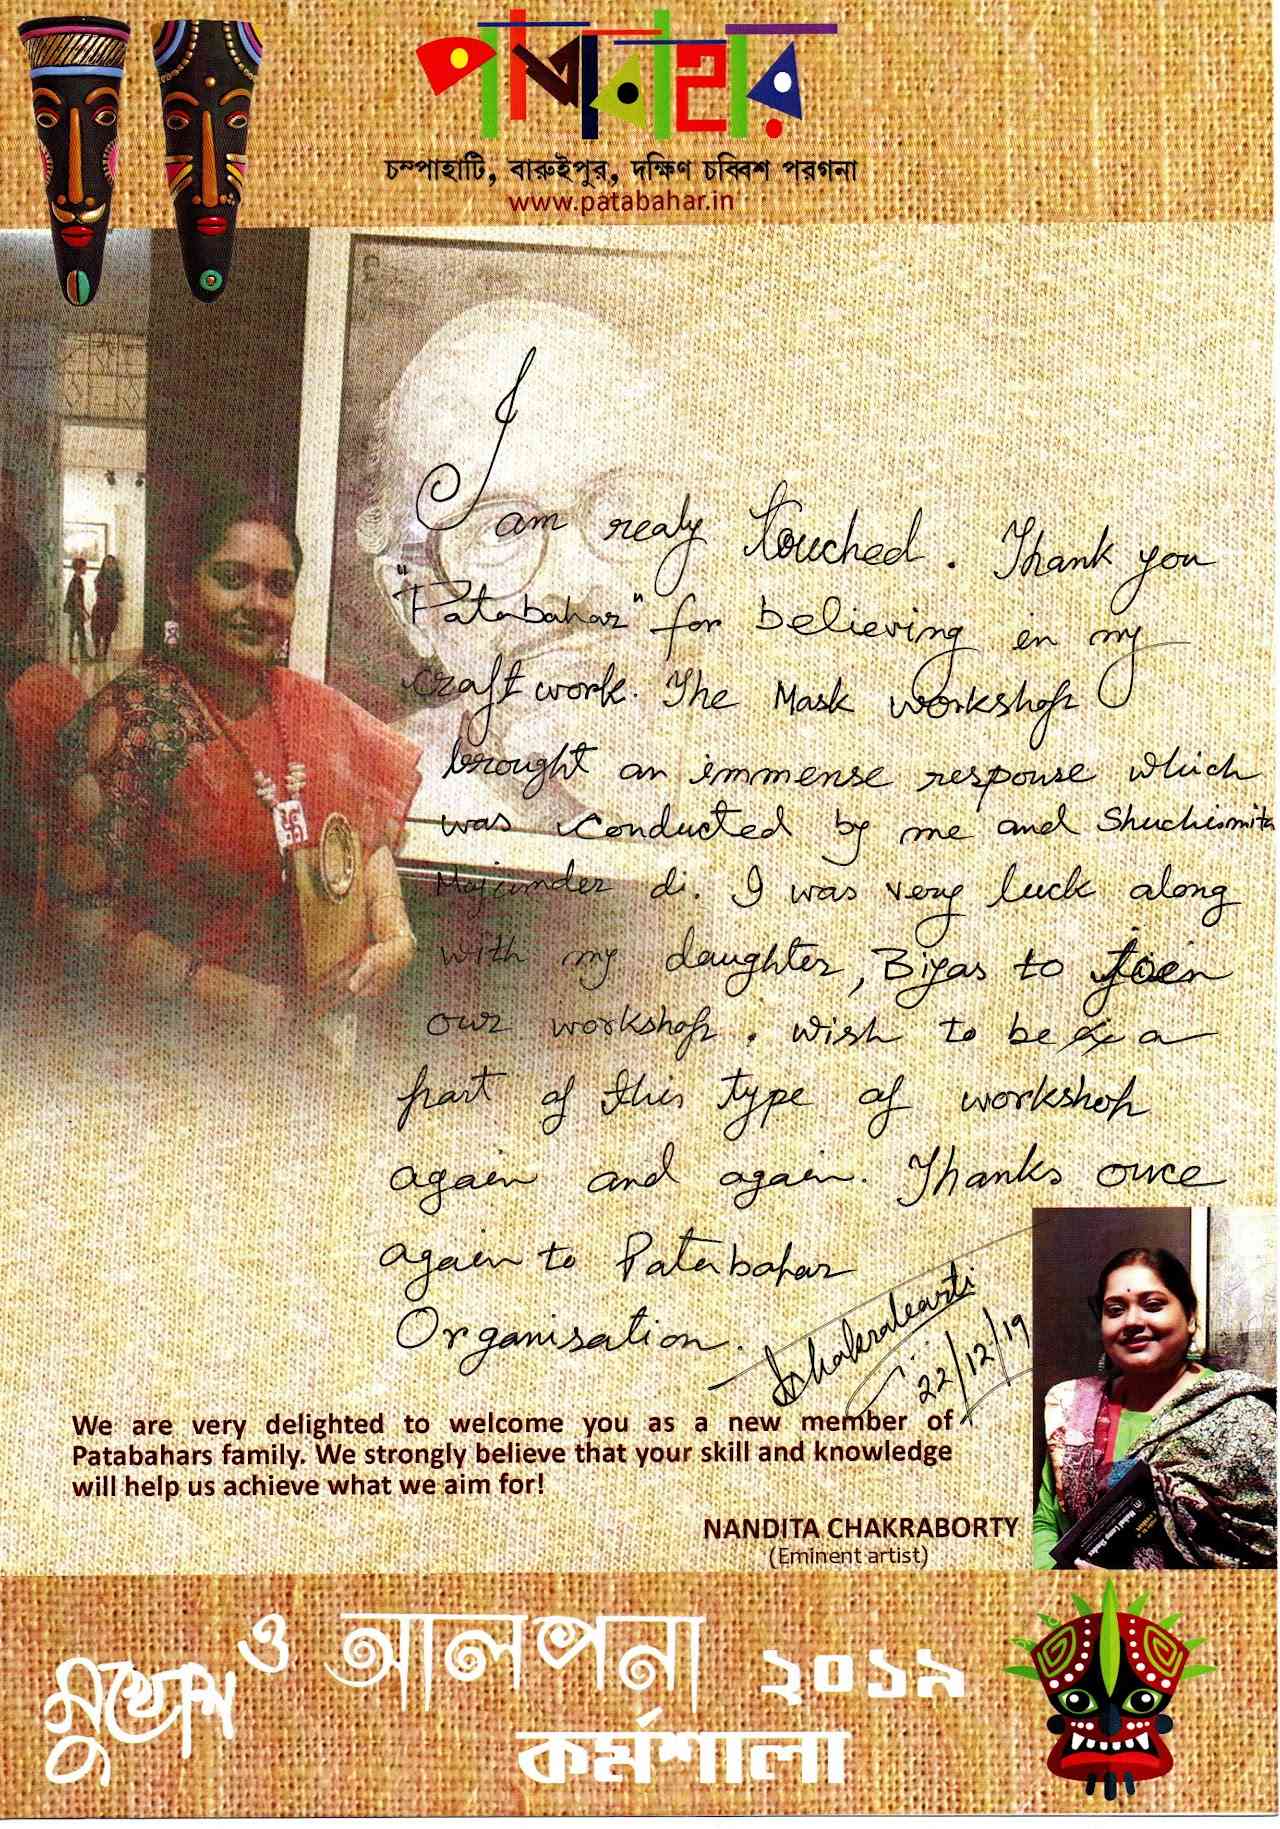 পাতাবাহার
চম্পাহাটি, বারুইপুর, দক্ষিণ চব্বিশ পরগনা
www.patabahar.in
I am realy touched. Thank you
"Patabahar" for believing in my
craft work. The Mask workshop
brought an immense response which
was conducted by me and Shuchismita
Majumder di. I was very luck along
with my daughter, Biyas to join
our workshop. wish to be a
part of this type of workshop
again and again. Thanks once
again to Patabahar
Organisation.
Chakraborti
22/12/19
We are very delighted to welcome you as a new member of
Patabahars family. We strongly believe that your skill and knowledge
will help us achieve what we aim for!
NANDITA CHAKRABORTY
(Eminent artist)
মুখোশ ও আলপনা ২০১৯
কর্মশালা